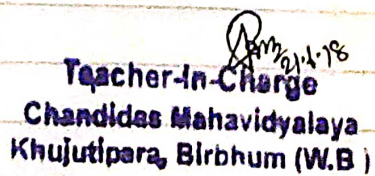 21.7.18
Teacher-In-Charge
Chandidas Mahavidyalaya
Khujutipara, Birbhum (W.B)